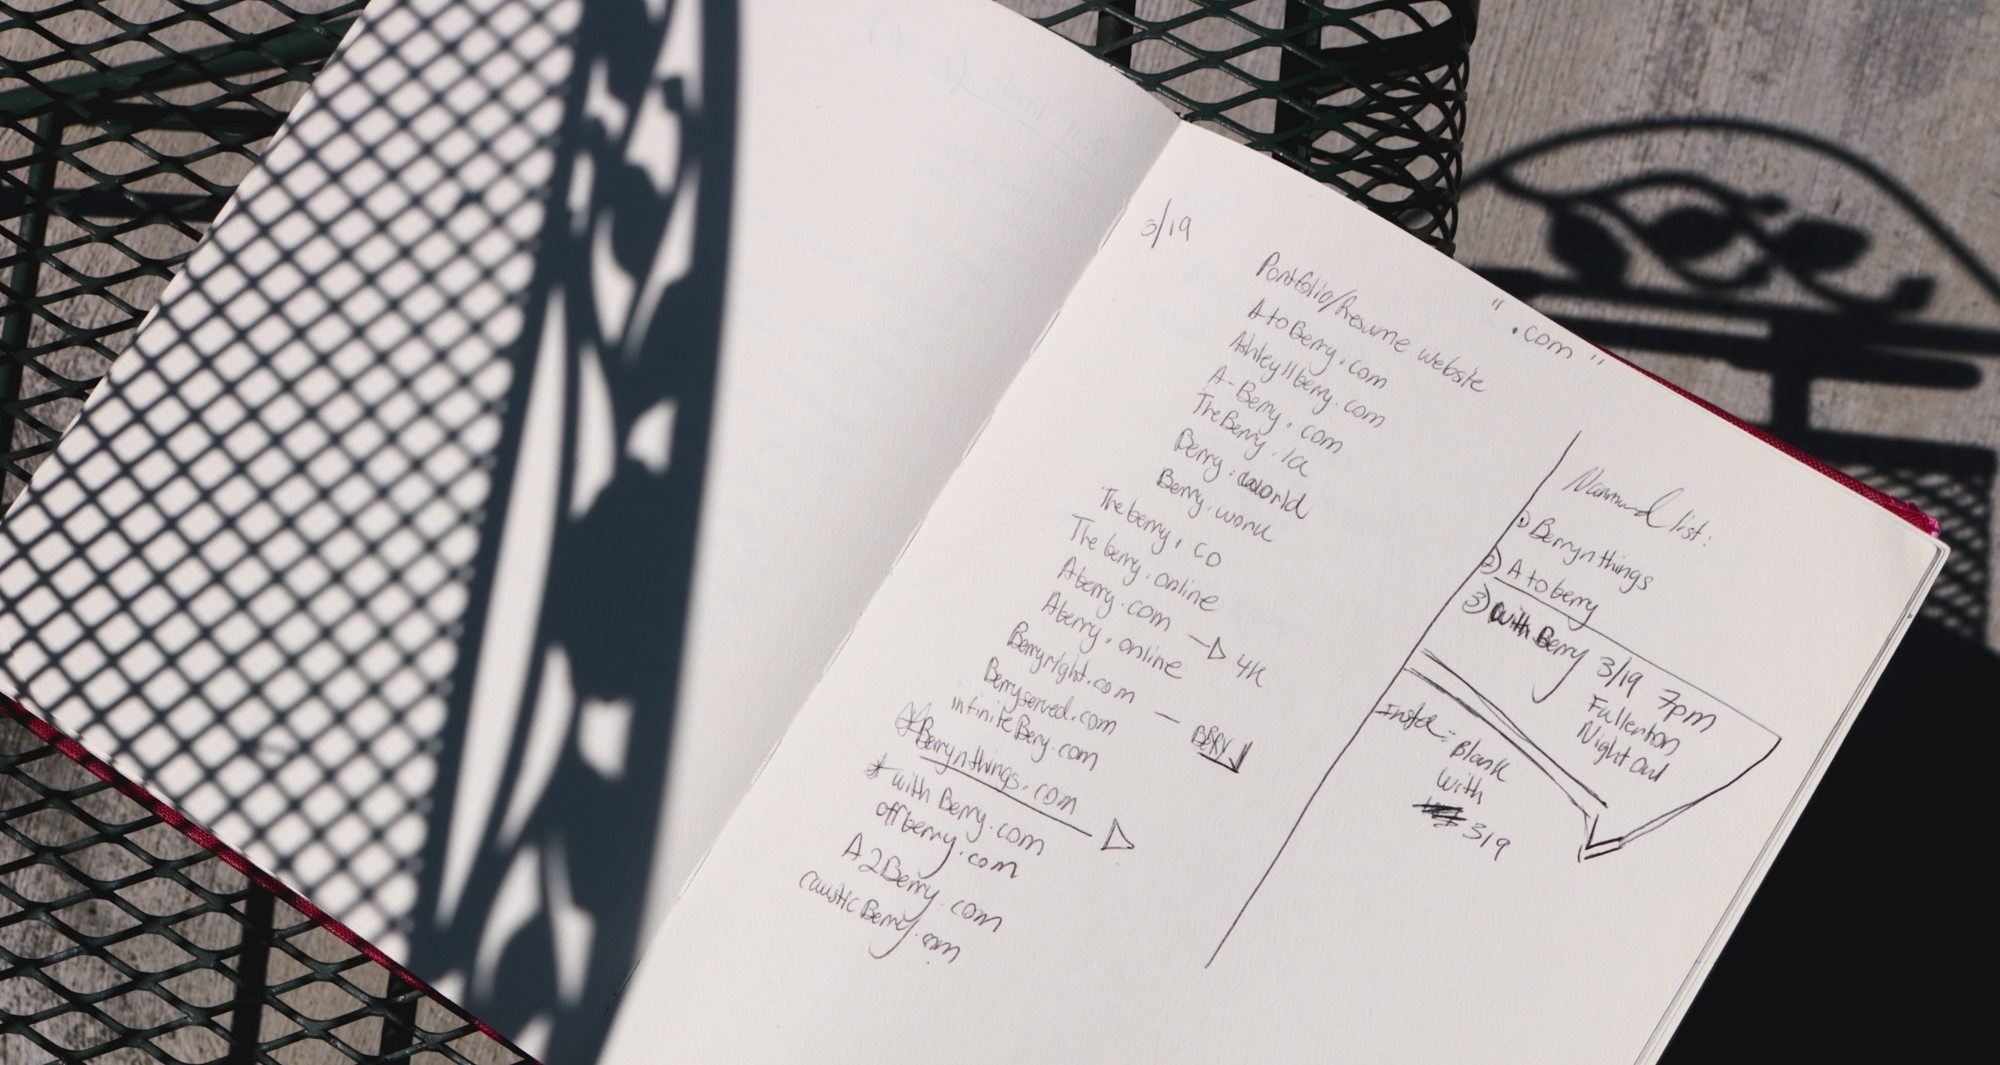 3/19
Portfolio/Resume website
" .com "
AtoBerry.com
Ashley11berry.com
A-Berry.com
TheBerry.la
Berry.world
Berry.work
Theberry.co
The berry.online
Aberry.com → 4K
Aberry.online
Berryright.com
Berryserved.com — BERRY
infiniteBerry.com
Berrynthings.com
* with Berry.com
offberry.com
A2Berry.com
causticBerry.com
list:
1) Berrynthings
2) A to berry
3) with Berry 3/19 7pm
Fullerton
Night Owl
Insta - Blank
with
319